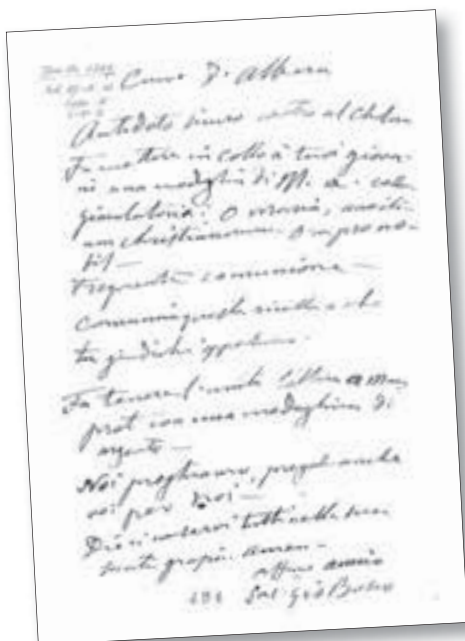 Caro D. Albera
Antidoto sicuro contro al Cholera
Fa mettere in collo a' tuoi giova-
ni una medaglia di M. A. colla
giaculatoria: O Maria, auxili-
um christianorum ora pro no-
bis —
Frequente comunione —
Comunica questa ricetta a chi
tu giudichi
Fa tenere
prot con una medaglia di
argento —
Noi preghiamo, pregate anche
voi per noi —
Dio ci conservi tutti nella sua
santa grazia. Amen -
affmo amico
Sac. Gio Bosco